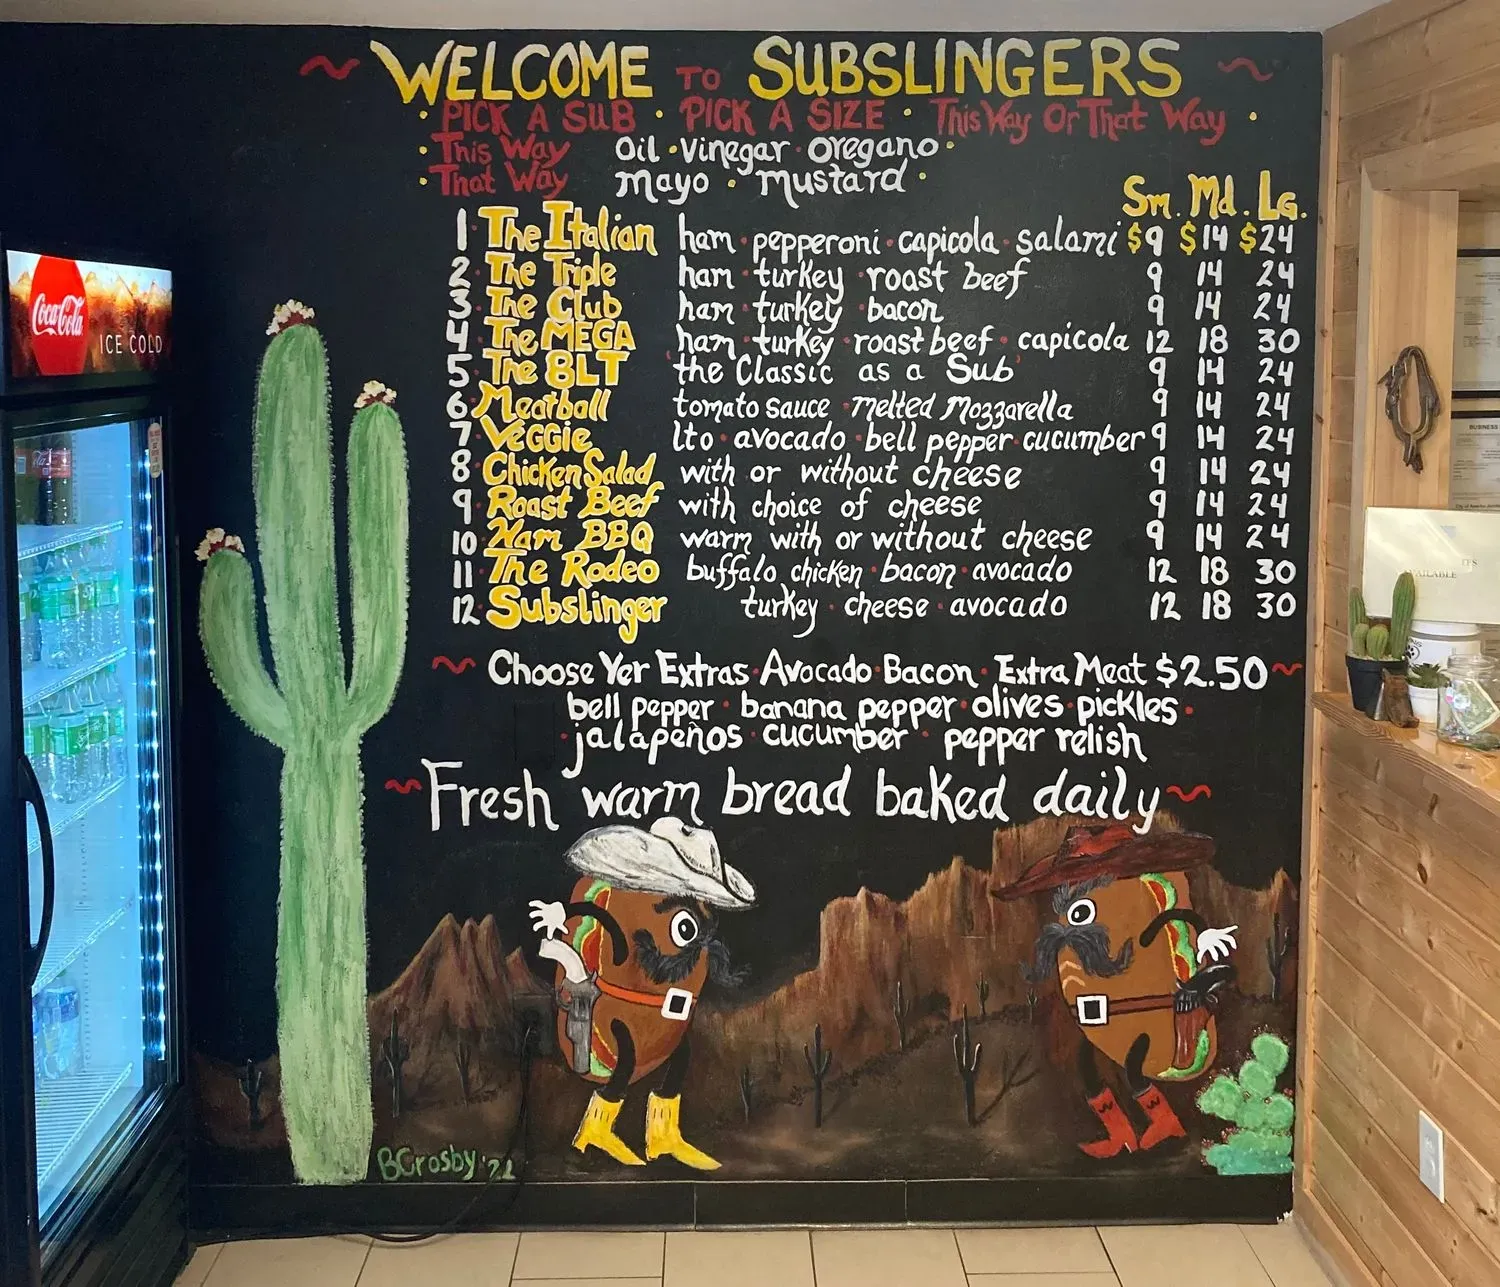 ~ WELCOME TO SUBSLINGERS ~
• PICK A SUB • PICK A SIZE • This Way Or That Way •
• This Way Oil • vinegar • oregano •
• That Way mayo • mustard •
Sm. Md. Lg.
1 The Italian ham • pepperoni • capicola • salami $9 $14 $24
2 The Triple ham • turkey • roast beef 9 14 24
3 The Club ham • turkey • bacon 9 14 24
4 The MEGA ham • turkey • roast beef • capicola 12 18 30
5 The BLT the Classic as a Sub 9 14 24
6 Meatball tomato sauce • melted Mozzarella 9 14 24
7 Veggie lto • avocado • bell pepper • cucumber 9 14 24
8 Chicken Salad with or without cheese 9 14 24
9 Roast Beef with choice of cheese 9 14 24
10 Ham BBQ warm with or without cheese 9 14 24
11 The Rodeo buffalo chicken • bacon • avocado 12 18 30
12 Subslinger turkey • cheese • avocado 12 18 30
~ Choose Yer Extras • Avocado • Bacon • Extra Meat $2.50 ~
bell pepper • banana pepper • olives • pickles •
• jalapeños • cucumber • pepper relish
~ Fresh warm bread baked daily ~
BCrosby '22
Coca-Cola
ICE COLD
BUSINESS
AVAILABLE